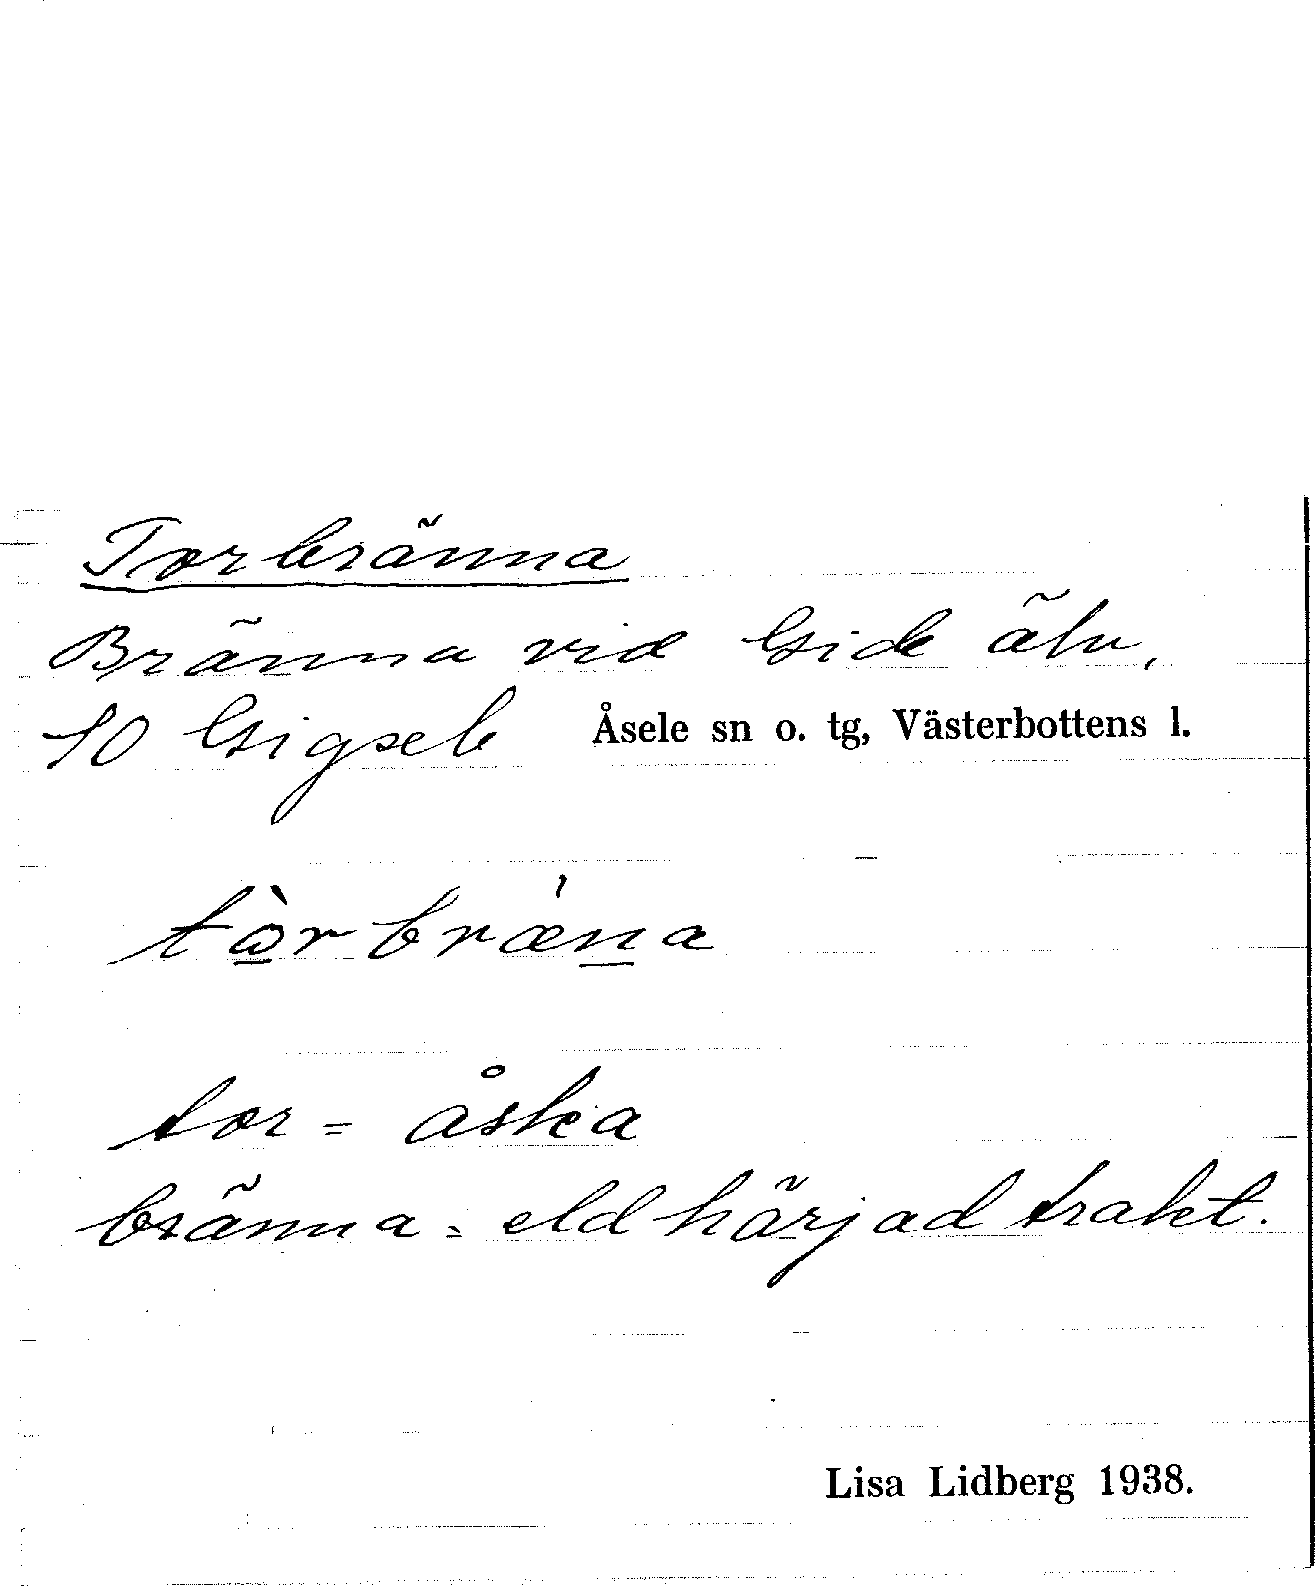 Torbränna
Bränna vid Gide älv,
SO Gigsele Åsele sn o. tg, Västerbottens l.
tὼrbræ̀na
tor = åska
bränna = eldhärjad trakt.
Lisa Lidberg 1938.